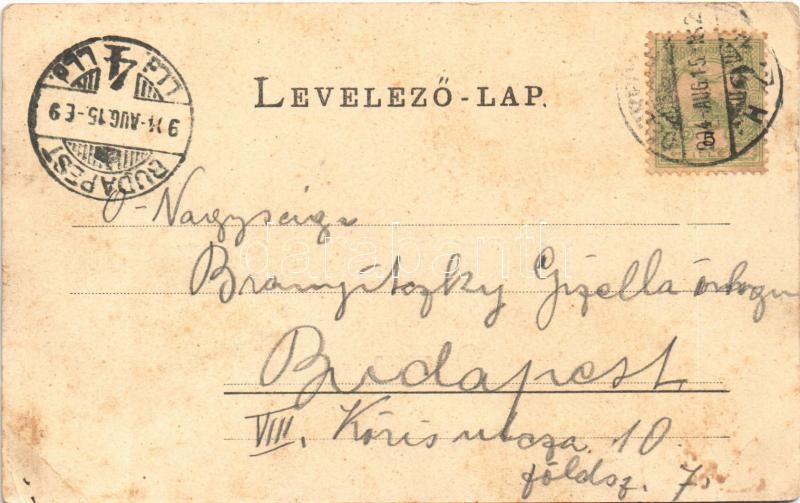 LEVELEZŐ-LAP.
BUDAPEST
904-AUG.15-E9
4
904-AUG.15-N2
6
Ő-Nagysága
Branyitszky Gizella úrhgy
Budapest
VIII, Kőris utcza. 10.
földsz. 7.
darabanth